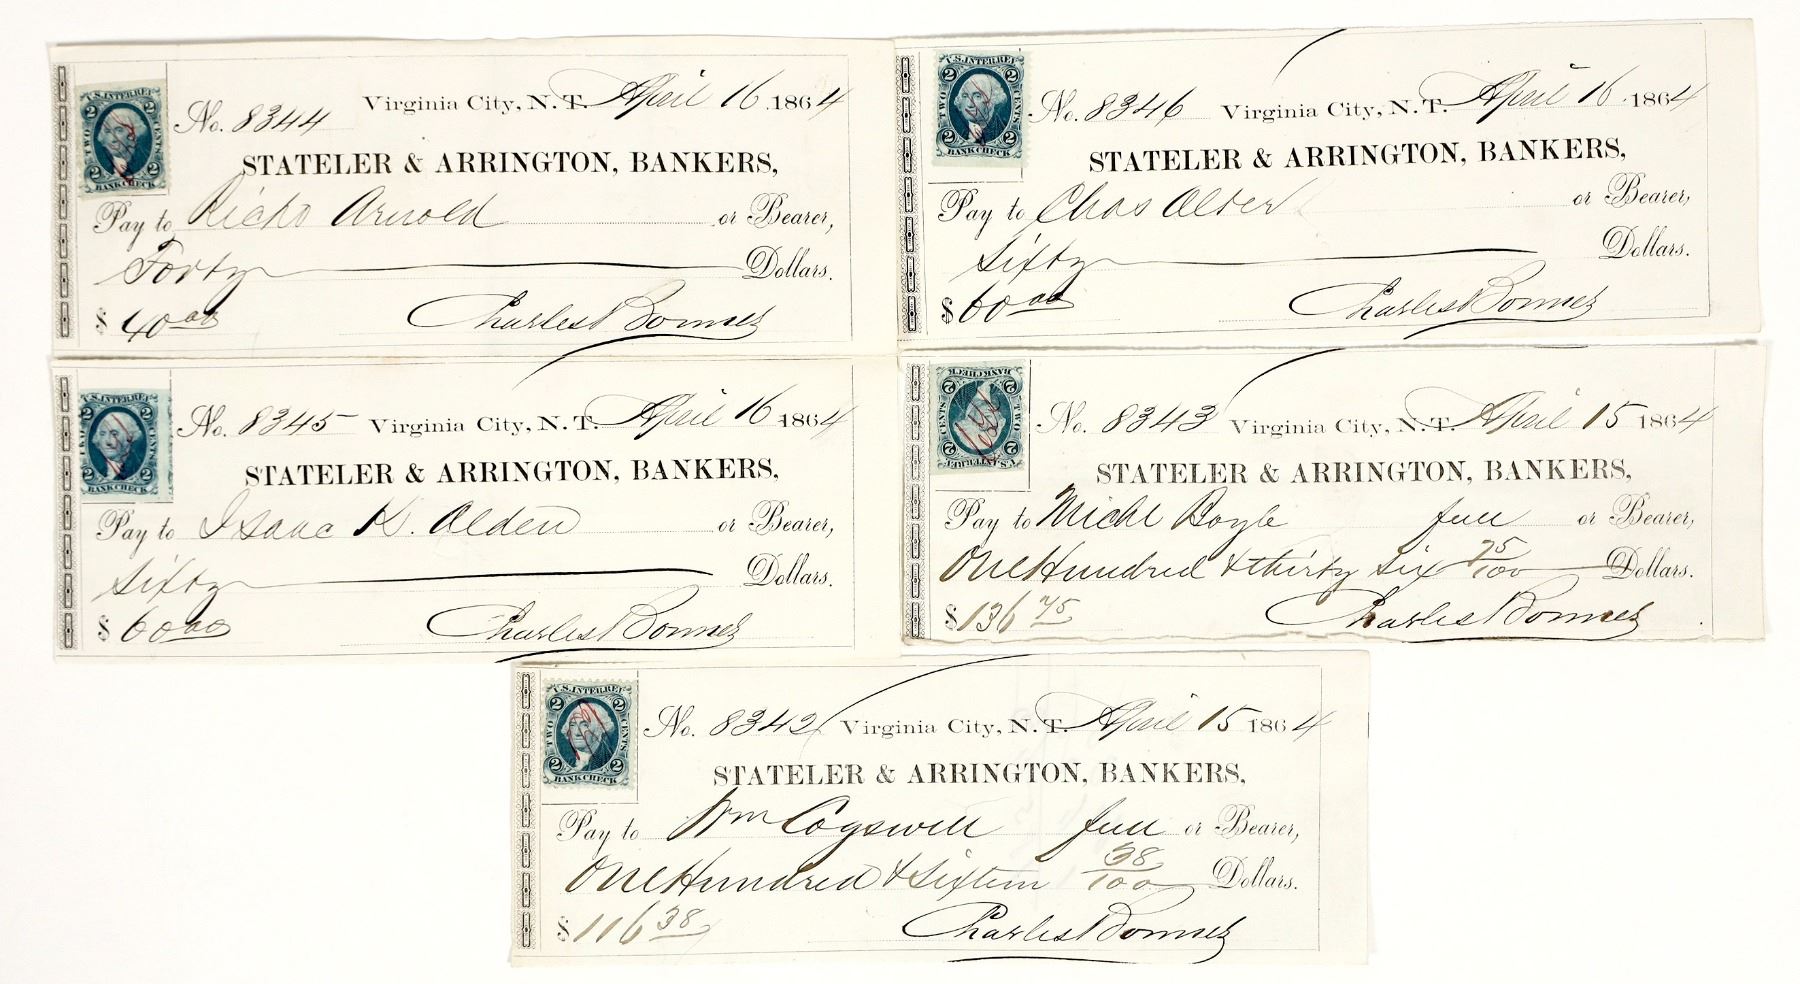 U.S. INTER. REV.
2 2
TWO CENTS
2 2
BANK CHECK
No. 8344 Virginia City, N.T. April 16 1864
STATELER & ARRINGTON, BANKERS,
Pay to Richd Arnold or Bearer,
Forty Dollars.
$ 40 00
Charles Bonner
U.S. INTER. REV.
2 2
TWO CENTS
2 2
BANK CHECK
No. 8346 Virginia City, N.T. April 16 1864
STATELER & ARRINGTON, BANKERS,
Pay to Chas or Bearer,
Sixty Dollars.
$ 60 00
Charles Bonner
U.S. INTER. REV.
2 2
TWO CENTS
2 2
BANK CHECK
No. 8345 Virginia City, N.T. April 16 1864
STATELER & ARRINGTON, BANKERS,
Pay to Isaac K. Alden or Bearer,
Sixty Dollars.
$ 60 00
Charles Bonner
U.S. INTER. REV.
2 2
TWO CENTS
2 2
BANK CHECK
No. 8343 Virginia City, N.T. April 15 1864
STATELER & ARRINGTON, BANKERS,
Pay to Michl Boyle full or Bearer,
One Hundred & thirty six 75/100 Dollars.
$ 136 75
Charles Bonner
U.S. INTER. REV.
2 2
TWO CENTS
2 2
BANK CHECK
No. 8342 Virginia City, N.T. April 15 1864
STATELER & ARRINGTON, BANKERS,
Pay to Wm Cogswell full or Bearer,
One Hundred & Sixteen 38/100 Dollars.
$ 116 38
Charles Bonner